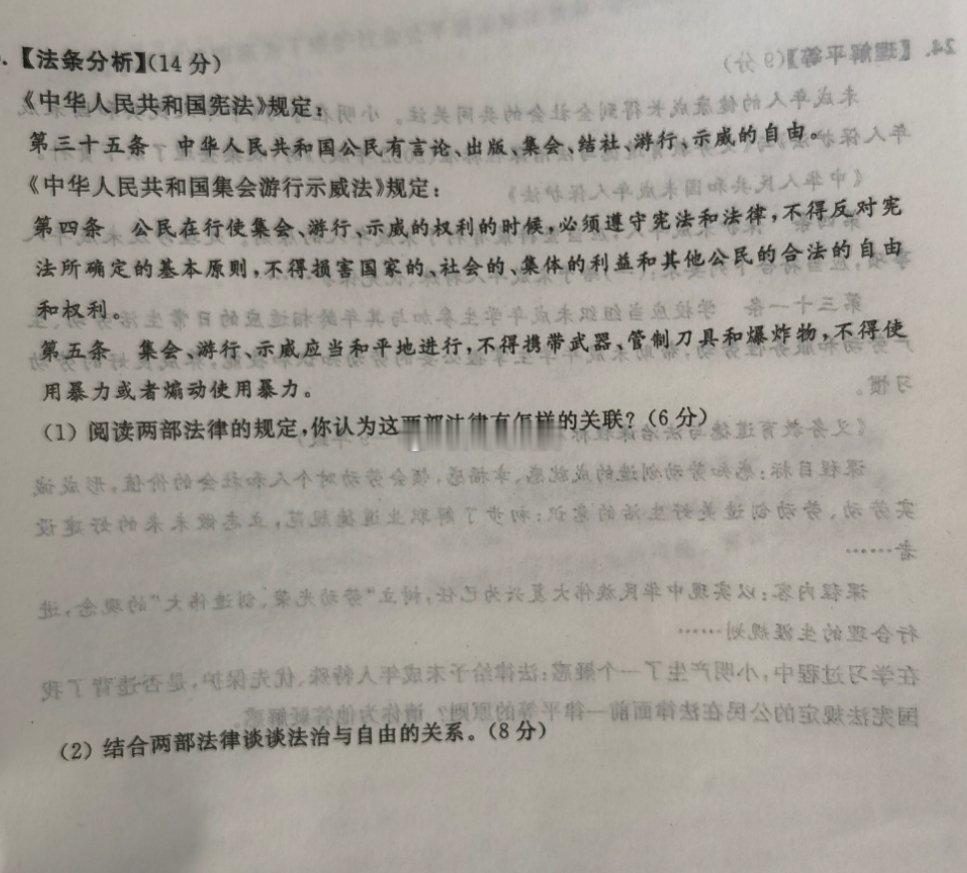 .【法条分析】(14 分)
《中华人民共和国宪法》规定：
第三十五条 中华人民共和国公民有言论、出版、集会、结社、游行、示威的自由。
《中华人民共和国集会游行示威法》规定：
第四条 公民在行使集会、游行、示威的权利的时候，必须遵守宪法和法律，不得反对宪
法所确定的基本原则，不得损害国家的、社会的、集体的利益和其他公民的合法的自由
和权利。
第五条 集会、游行、示威应当和平地进行，不得携带武器、管制刀具和爆炸物，不得使
用暴力或者煽动使用暴力。
(1) 阅读两部法律的规定，你认为这两部法律有怎样的关联？(6 分)
(2) 结合两部法律谈谈法治与自由的关系。(8 分)